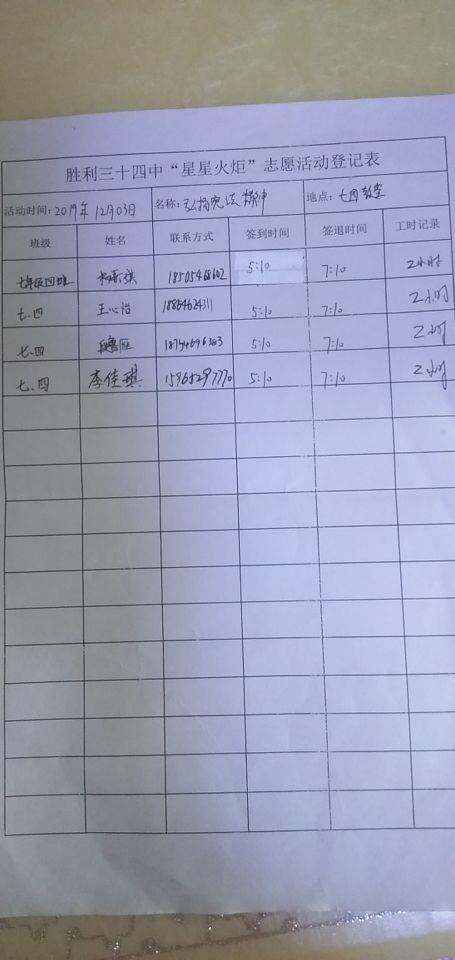 胜利三十四中“星星火炬”志愿活动登记表
活动时间：2019年12月03日 名称：弘扬宪法精神 地点：七四教室
班级 姓名 联系方式 签到时间 签退时间 工时记录
七年级四班 5:10 7:10 2小时
七.四 王心怡 18864624311 5:10 7:10 2小时
七.四 5:10 7:10 2小时
七.四 李佳琪 15965297770 5:10 7:10 2小时